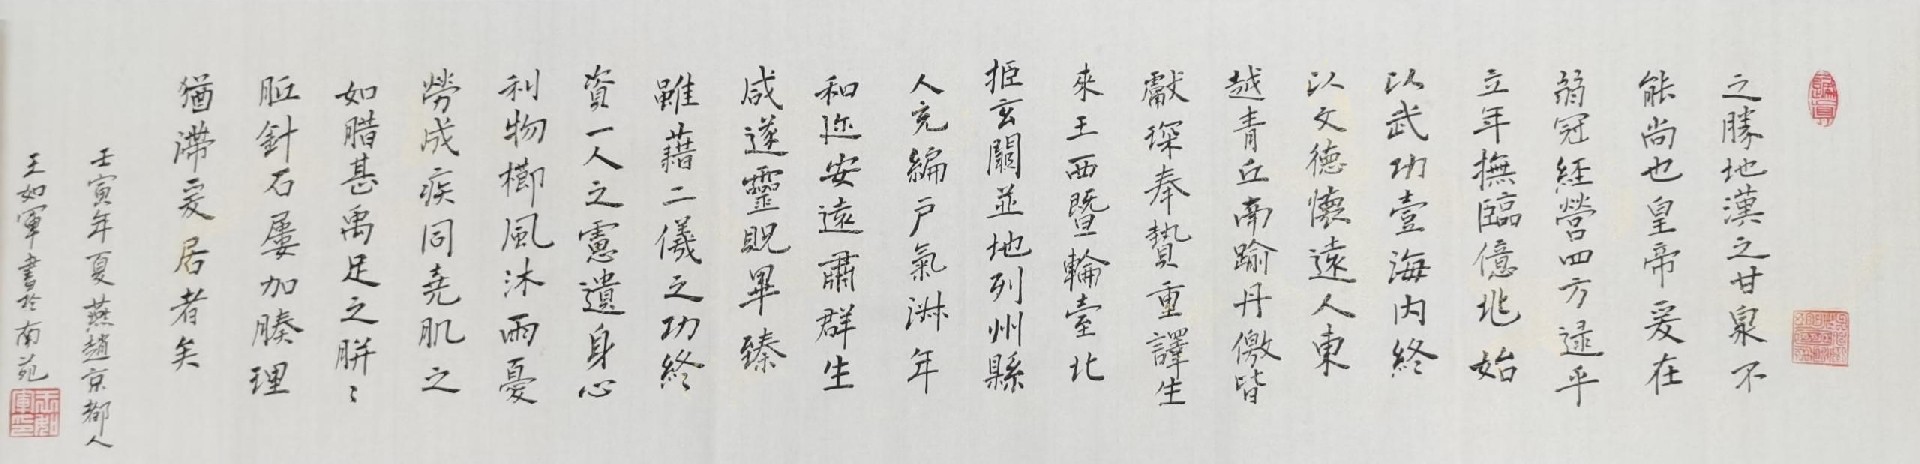 之勝地漢之甘泉不
能尚也皇帝爰在
弱冠經營四方逯乎
立年撫臨億兆始
以武功壹海內終
以文德懷遠人東
越青丘南踰丹儌皆
獻琛奉贄重譯
來王西暨輪臺北
拒玄闕並地列州縣
人充編戶氣淑年
和迩安遠肅群生
咸遂靈貺畢臻
雖藉二儀之功終
資一人之慮遺身
利物櫛風沐雨憂
勞成疾同堯肌之
如腊甚禹足之胼〻
胝針石屢加腠理
猶滯爰居者矣
壬寅年夏燕趙京都人
王如軍書於南苑